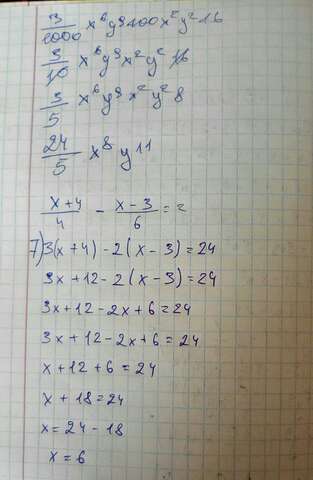 3/1000 x⁶y⁹400x²y²16
3/10 x⁶y⁹x²y²16
3/5 x⁶y⁹x²y²8
24/5 x⁸y11
x+4/4 - x-3/6 = 2
7)3(x+4)-2(x-3)=24
3x+12-2(x-3)=24
3x+12-2x+6=24
3x+12-2x+6=24
x+12+6=24
x+18=24
x=24-18
x=6